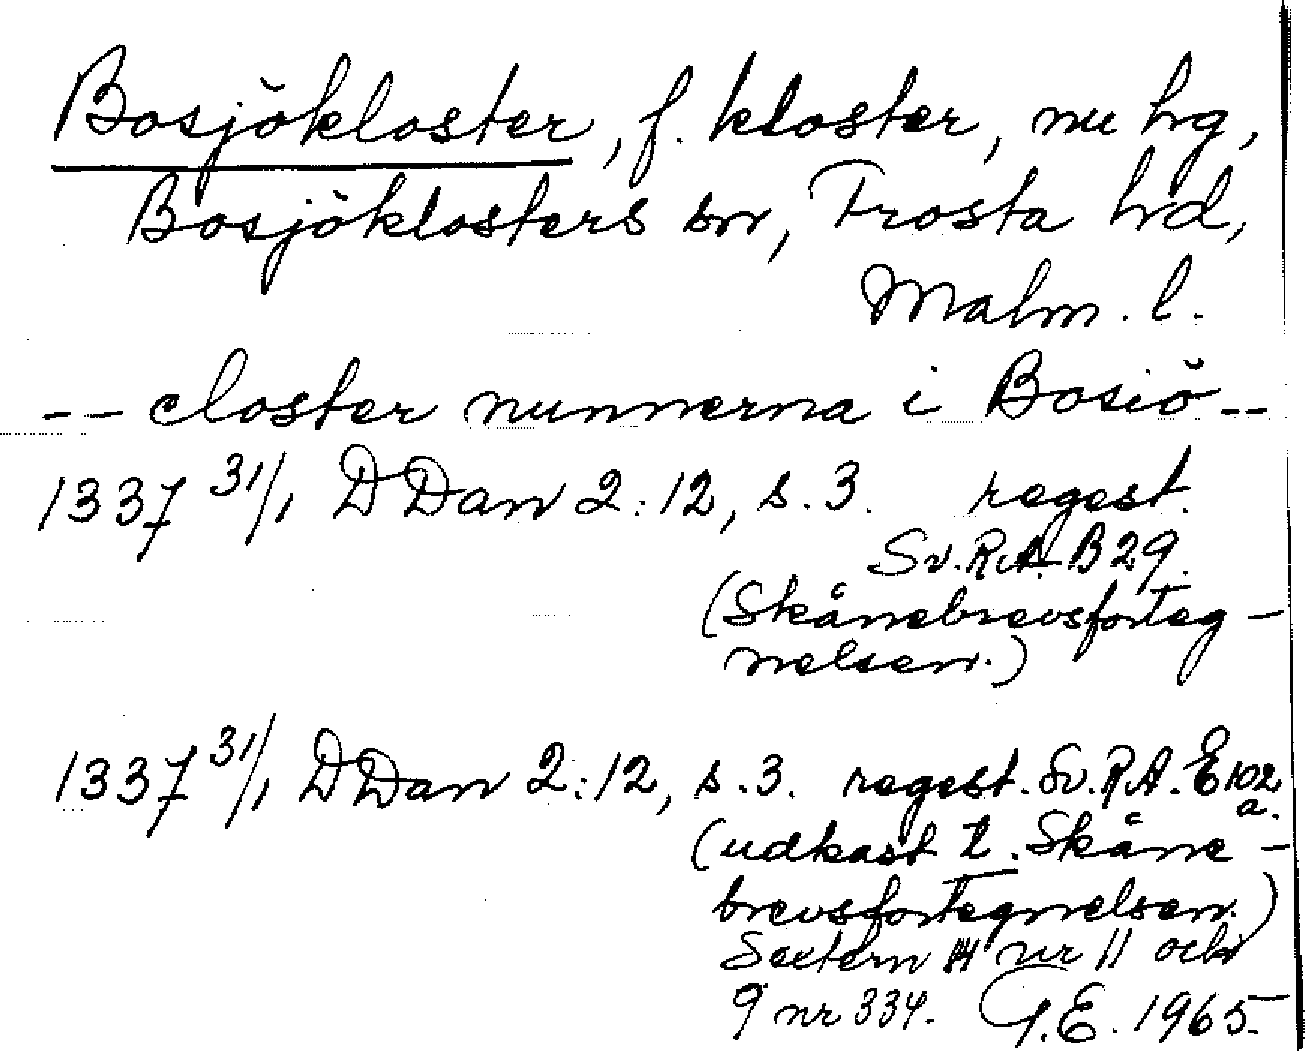 Bosjökloster, f. kloster, nu hg,
Bosjöklosters sn, Frosta hd,
Malm. l.
-- closter nunnerna i Bosiö --
1337 31/1 DDan 2:12, s. 3. regest.
Sv. R.A. B 29.
(Skånebrevsforteg-
nelsen.)
1337 31/1 DDan 2:12, s. 3. regest. Sv. R.A. E 102
a.
(udkast t. Skåne-
brevsfortegnelsen.)
nr 11 och
9 nr 334. G.E. 1965.